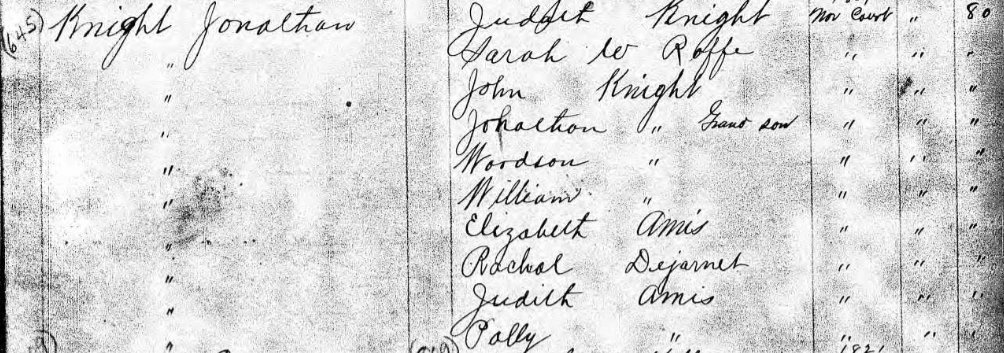 (645) Knight Jonathan Judith Knight Nov Court " 80
" Sarah W Roffe " " "
" John Knight " " "
" Johnathon " Grand son " " "
" Woodson " " " "
" William " " " "
" Elizabeth Amis " " "
" Rachal Dejarnet " " "
" Judith Amis " " "
" Polly " " " "
1821